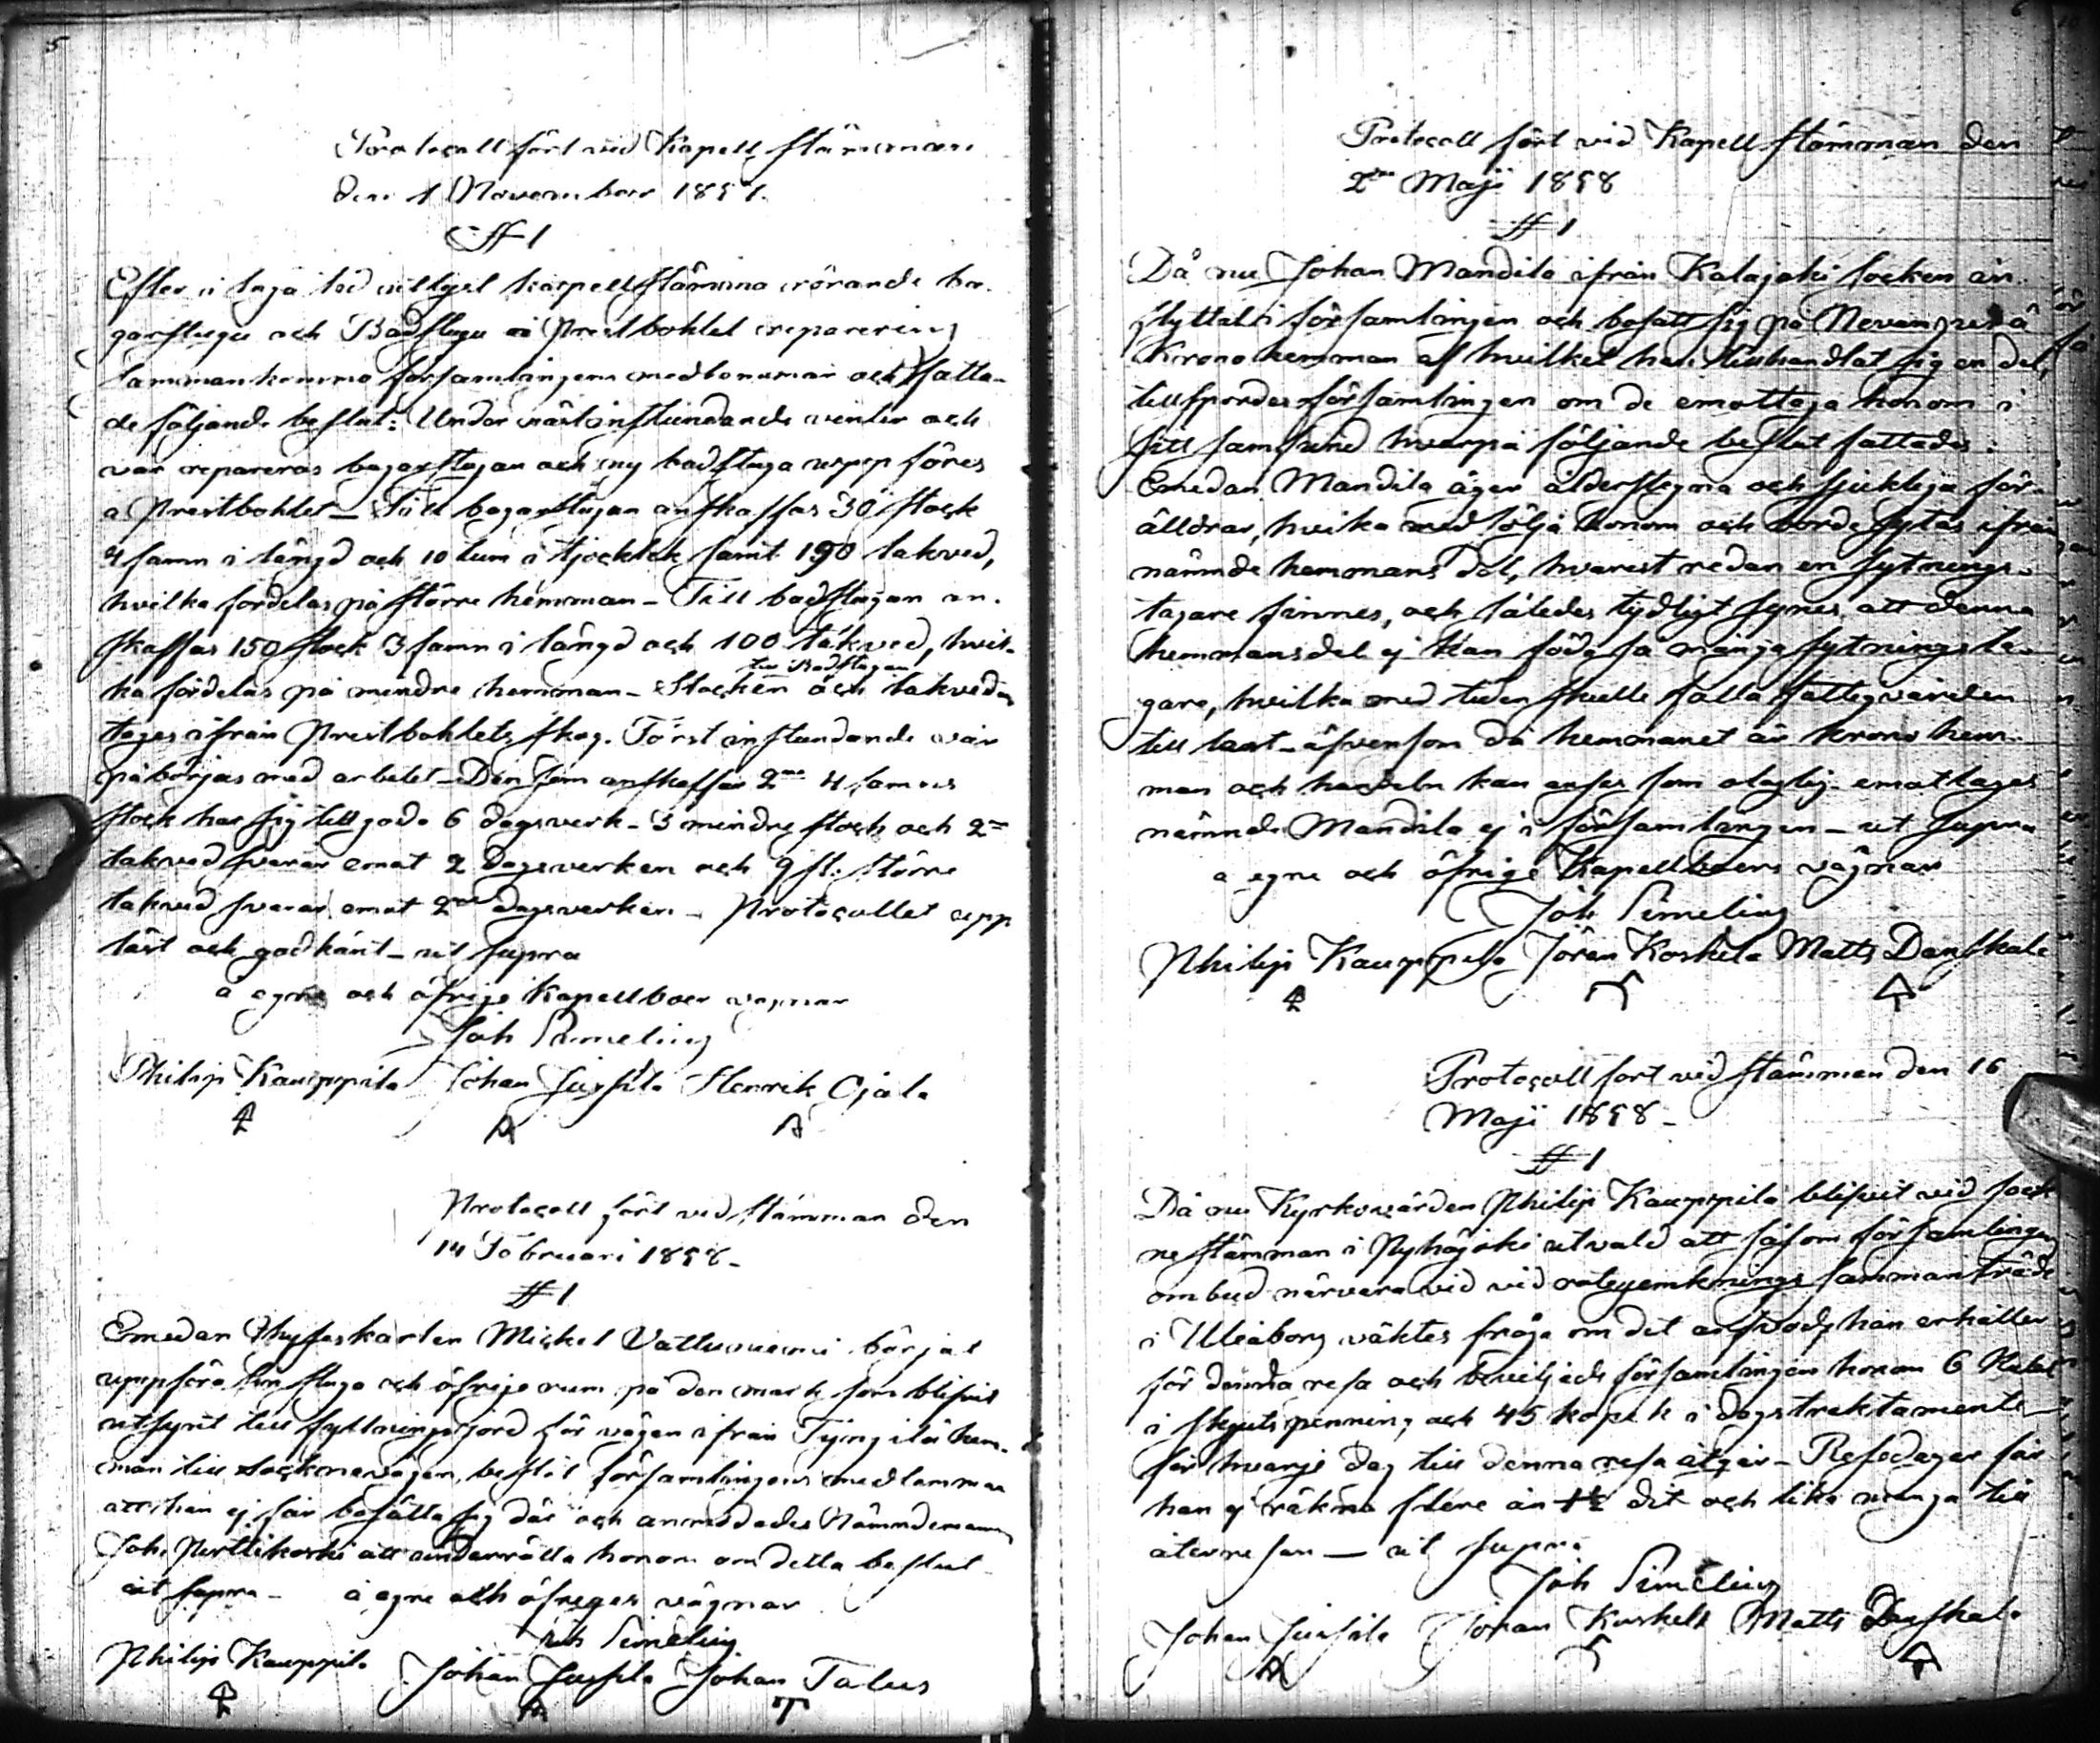 5
Protocoll fört vid Kapell stämman
den 1 November 1857.
§ 1
Efter i laga tid utlyst kapellstämma rörande ba-
garstugu och Badstugu å Prestbohlet reparering
sammankommo församlingens medlemmar och fatta-
de följande beslut: Under nästinstundande vinter och
vår repareras bagarstugan och ny badstuga upp föres
å Prestbohlet – Till bagarstugan anskaffas 30 stock
4 famn i längd och 10 tum i tjocklek samt 190 takved,
hvilka fördelas på större hemman – Till badstugan an-
skaffas 150 stock 3 famn i längd och 100 takved, hvil-
till Badstugan
ka fördelas på mindre hemman – Stocken och takveden
tages ifrån Prestbohlets skog. Först instundande vår
påbörjas med arbetet – Den som anskaffar 4 famns
stock har sig till godo 6 dagsverk – 3 mindre stock och
takved svarar emot 2 dagsverken och 9 st. större
takved svarar emot dagsverken – Protocollet upp
läst och godkänt – ut supra
å egne och öfrige Kapellboer vägnar
Joh Simeling
Philip Kauppila Johan Jussila Henrik Ojala
Protocoll fört vid stämman den
14 Februari 1858 –
§ 1
Emedan Mickel Vattuniemi börjat
uppföra sin stuga och öfrige rum på den mark som blifvit
utsynt till fyllningsjord för vägen ifrån Tyngilä hem-
man till Socknevägen, beslöt församlingens medlemmar
att han ej får bosätta sig där och anmodades Nämndeman
Joh. Perttikoski att underrätta honom om detta beslut
ut supra – å egne och öfriges vägnar
Joh Simeling
Philip Kauppila Johan Jussila Johan Talus
6
Protocoll fört vid Kapell stämman den
2 Maji 1858
§ 1
Då nu Johan Mandila ifrån Kalajoki socken in-
flyttat i församlingen och bosatt sig på Nevanperä
Krono hemman af hvilket han tillhandlat sig en del,
tillspordes församlingen om de emottaga honom i
sitt samfund hvarpå följande beslut fattades:
Emedan Mandila äger ålderstegna och sjuklija för-
älldrar, hvilka medfölja honom och borde sytas ifrån
nämnde hemmans del, hvarest redan en sytnings-
tagare finnes, och således tydligt synes att denna
hemmansdel ej kan föda så många sytningsta-
gare, hvilka med tiden skulle falla fattigvården
till last – äfvensom då hemmanet är krono hem-
man och handeln kan anses som olaglig – emottages
nämnde Mandila ej i församlingen – ut supra
å egne och öfrige Kapellboers vägnar
Joh Simeling
Philip Kauppila Jöran Koskela Matts Danskala
Protocoll fört vid stämman den 16
Maji 1858 –
§ 1
Då nu Kyrkovärden Philip Kauppila blifvit vid sock-
ne stämman i Pyhäjoki utvald att såsom församlingens
ombud närvara vid vid sammanträde
i Uleåborg väktes fråga om det arfvode han erhåller
för denna resa och beviljade församlingen honom 6 Rubel
i skjutspenning och 45 kopek i dagstraktamente
för hvarje dag till denna resa åtgår – Resedagar får
han ej räkna flere än 1½ dit och lika många till
återresan – ut supra
Joh Simeling
Johan Jussila Jöran Koskela Matts Danskala